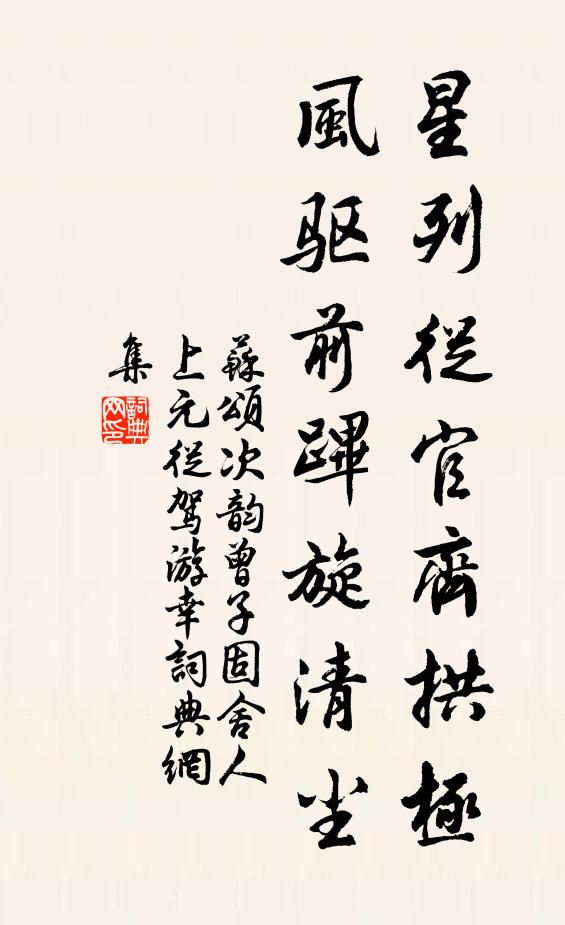 星列從官齊拱極
風驱前蹕旋清尘
蘇頌次韵曾子固舍人
上元從驾游幸詞典網
集
詞典
网印